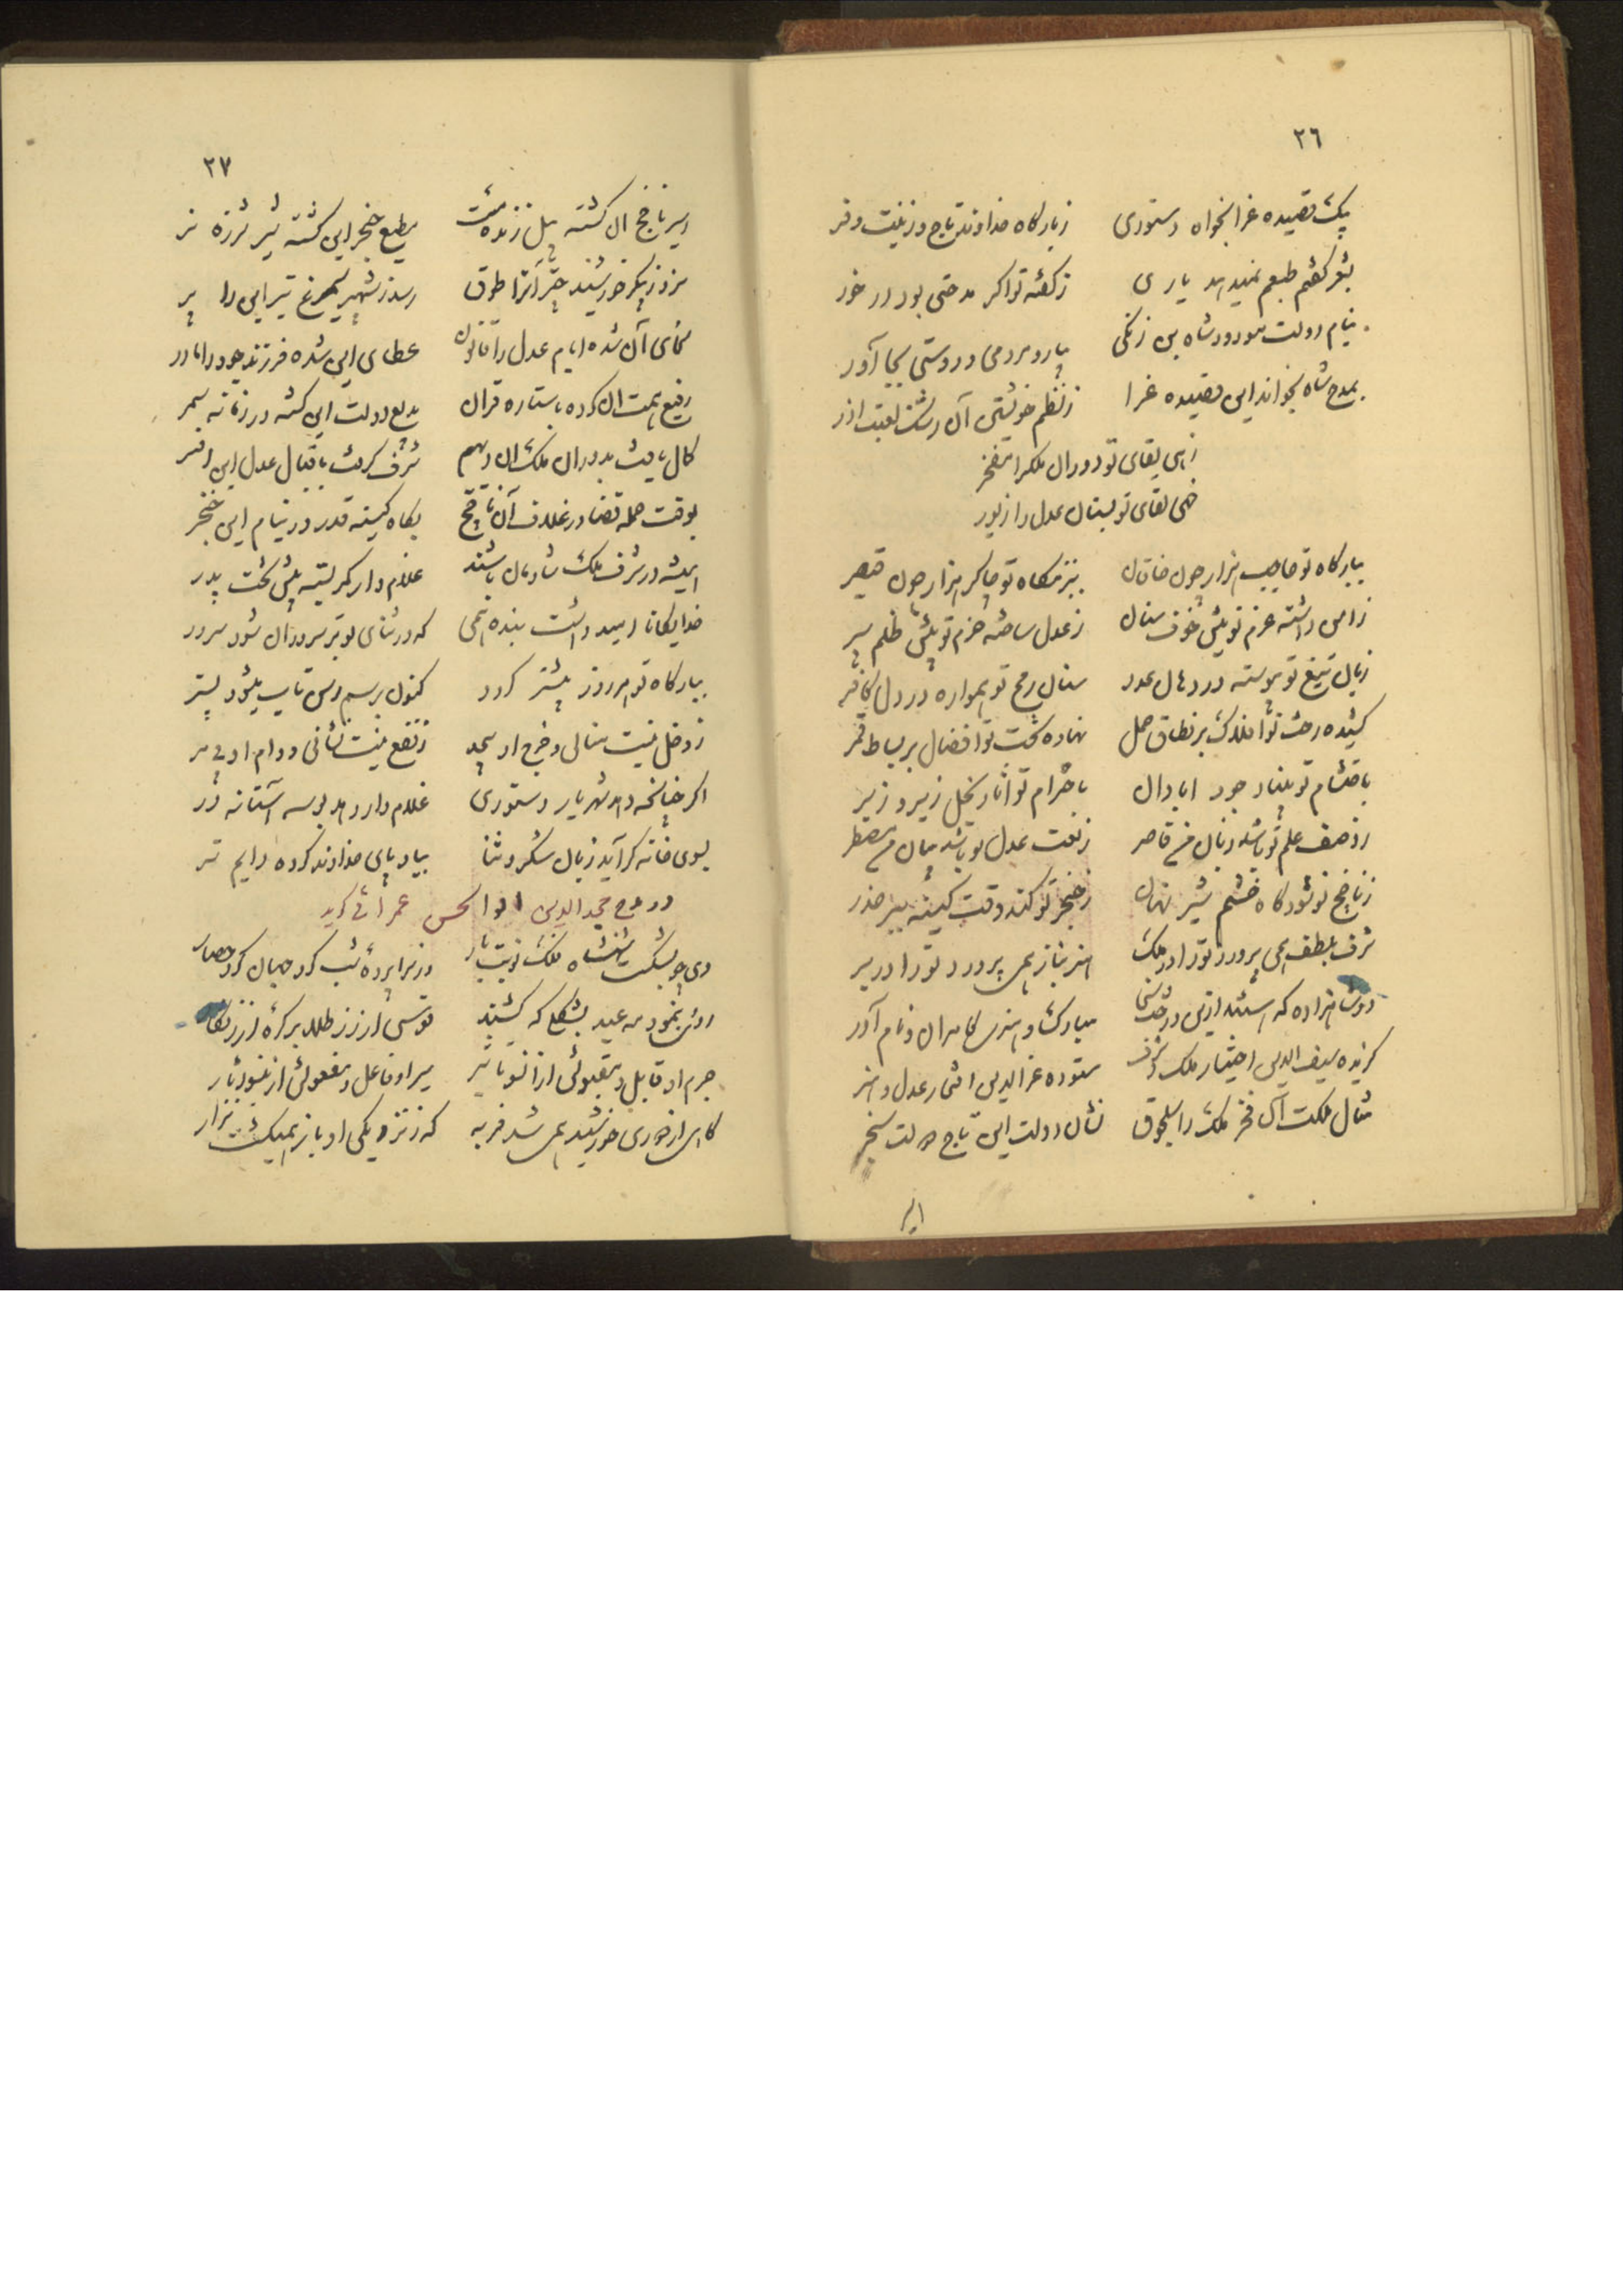 ٢٦
یک قصیده غرا بخواه دستوری زبارگاه خداوند تاج و زینت و فر
بشعر گفتم طبعم نمیدهد یاری ز گفته تو اگر مدحتی بود در خور
بنام دولت مودود شاه بن زنگی بیار و مردمی و دوستی بجا آور
بمدح شاه بخواند این قصیده غرا ز نظم خویشتن آن رشک لعبت آذر
زهی بقای تو دوران ملک را مفخر
خهی لقای تو بستان عدل را زیور
ببارگاه تو حاجب هزار چون خاقان ببزمگاه تو چاکر هزار چون قیصر
ز امن داشته عزم تو پیش خوف سنان ز عدل ساخته حزم تو پیش ظلم سپر
زبان تیغ تو پیوسته در دهان عدو سنان رمح تو همواره در دل کافر
کشیده رخت تو افلاک بر نطاق حمل نهاده تخت تو افضال بر بساط قمر
باحتشام تو بنیاد جود آبادان باحترام تو آثار بخل زیر و زبر
ز وصف علم تو باشد زبان من قاصر ز نعت عدل تو باشد بیان من مضطر
ز ناچخ تو شود گاه خشم شیر نهان ز خنجر تو کند وقت کینه ببر حذر
شرف بلطف همی پرورد تو را در ملک هنر بناز همی پرورد تو را در بر
دو شاهزاده که هستند ازین درخت سخا مبارکند و هنرمند کامران و نام آور
گزیده سیف الدین اختیار ملک شرف ستوده عزالدین افتخار عدل و هنر
مثال ملکت آن فخر ملکت سلجوق نشان دولت این تاج دولت سنجر
٢٧
اسیر ناچخ آن گشته پیل زنده مست مطیع خنجر این گشته شیر شرزه نر
سزد ز پیکر خورشید چتر آنرا طوق رسد ز شهپر سیمرغ تیر این را پر
سخای آن شده ایام عدل را قانون عطای این شده فرزند جود را مادر
رفیع همت آن کرده با ستاره قران بدیع دولت این گشته در زمانه سمر
کمال یافت بدوران ملک آن دیهیم شرف گرفت باقبال عدل این افسر
بوقت حمله قضا در غلاف آن ناچخ بگاه کینه قدر در نیام این خنجر
همیشه در شرف ملک شادمان باشند غلام وار کمر بسته پیش تخت پدر
خدایگانا امید داشت بنده همی که در ثنای تو بر سروران شود سرور
ببارگاه تو هر روز بیشتر گردد کنون برسم رسن تاب میشود پستر
ز دخل نیست منالی و خرج او بیحد ز نفع نیست نشانی و وام او بیمر
اگر چنانچه دهد شهریار دستوری غلام وار دهد بوسه آستانه در
بسوی خانه گراید زبان بشکر و ثنا بیاد پای خداوند کرده دایم تر
در مدح مجدالدین ابوالحسن عمرانی گوید
دی چو بشکست شهنشاه فلک نوبت بار وز سرا پرده شب کرد جهان کرد حصار
روی بنمود مه عید بشکلی که کشند قوسی از زر طلا بر کره از زنگار
جرم او قابل و مقبولش از انوار تاثیر سیر او فاعل و مفعولش از این سو آثار
گاه از دوری خورشید همی شد فربه که ز نزدیکی او باز همی گشت نزار